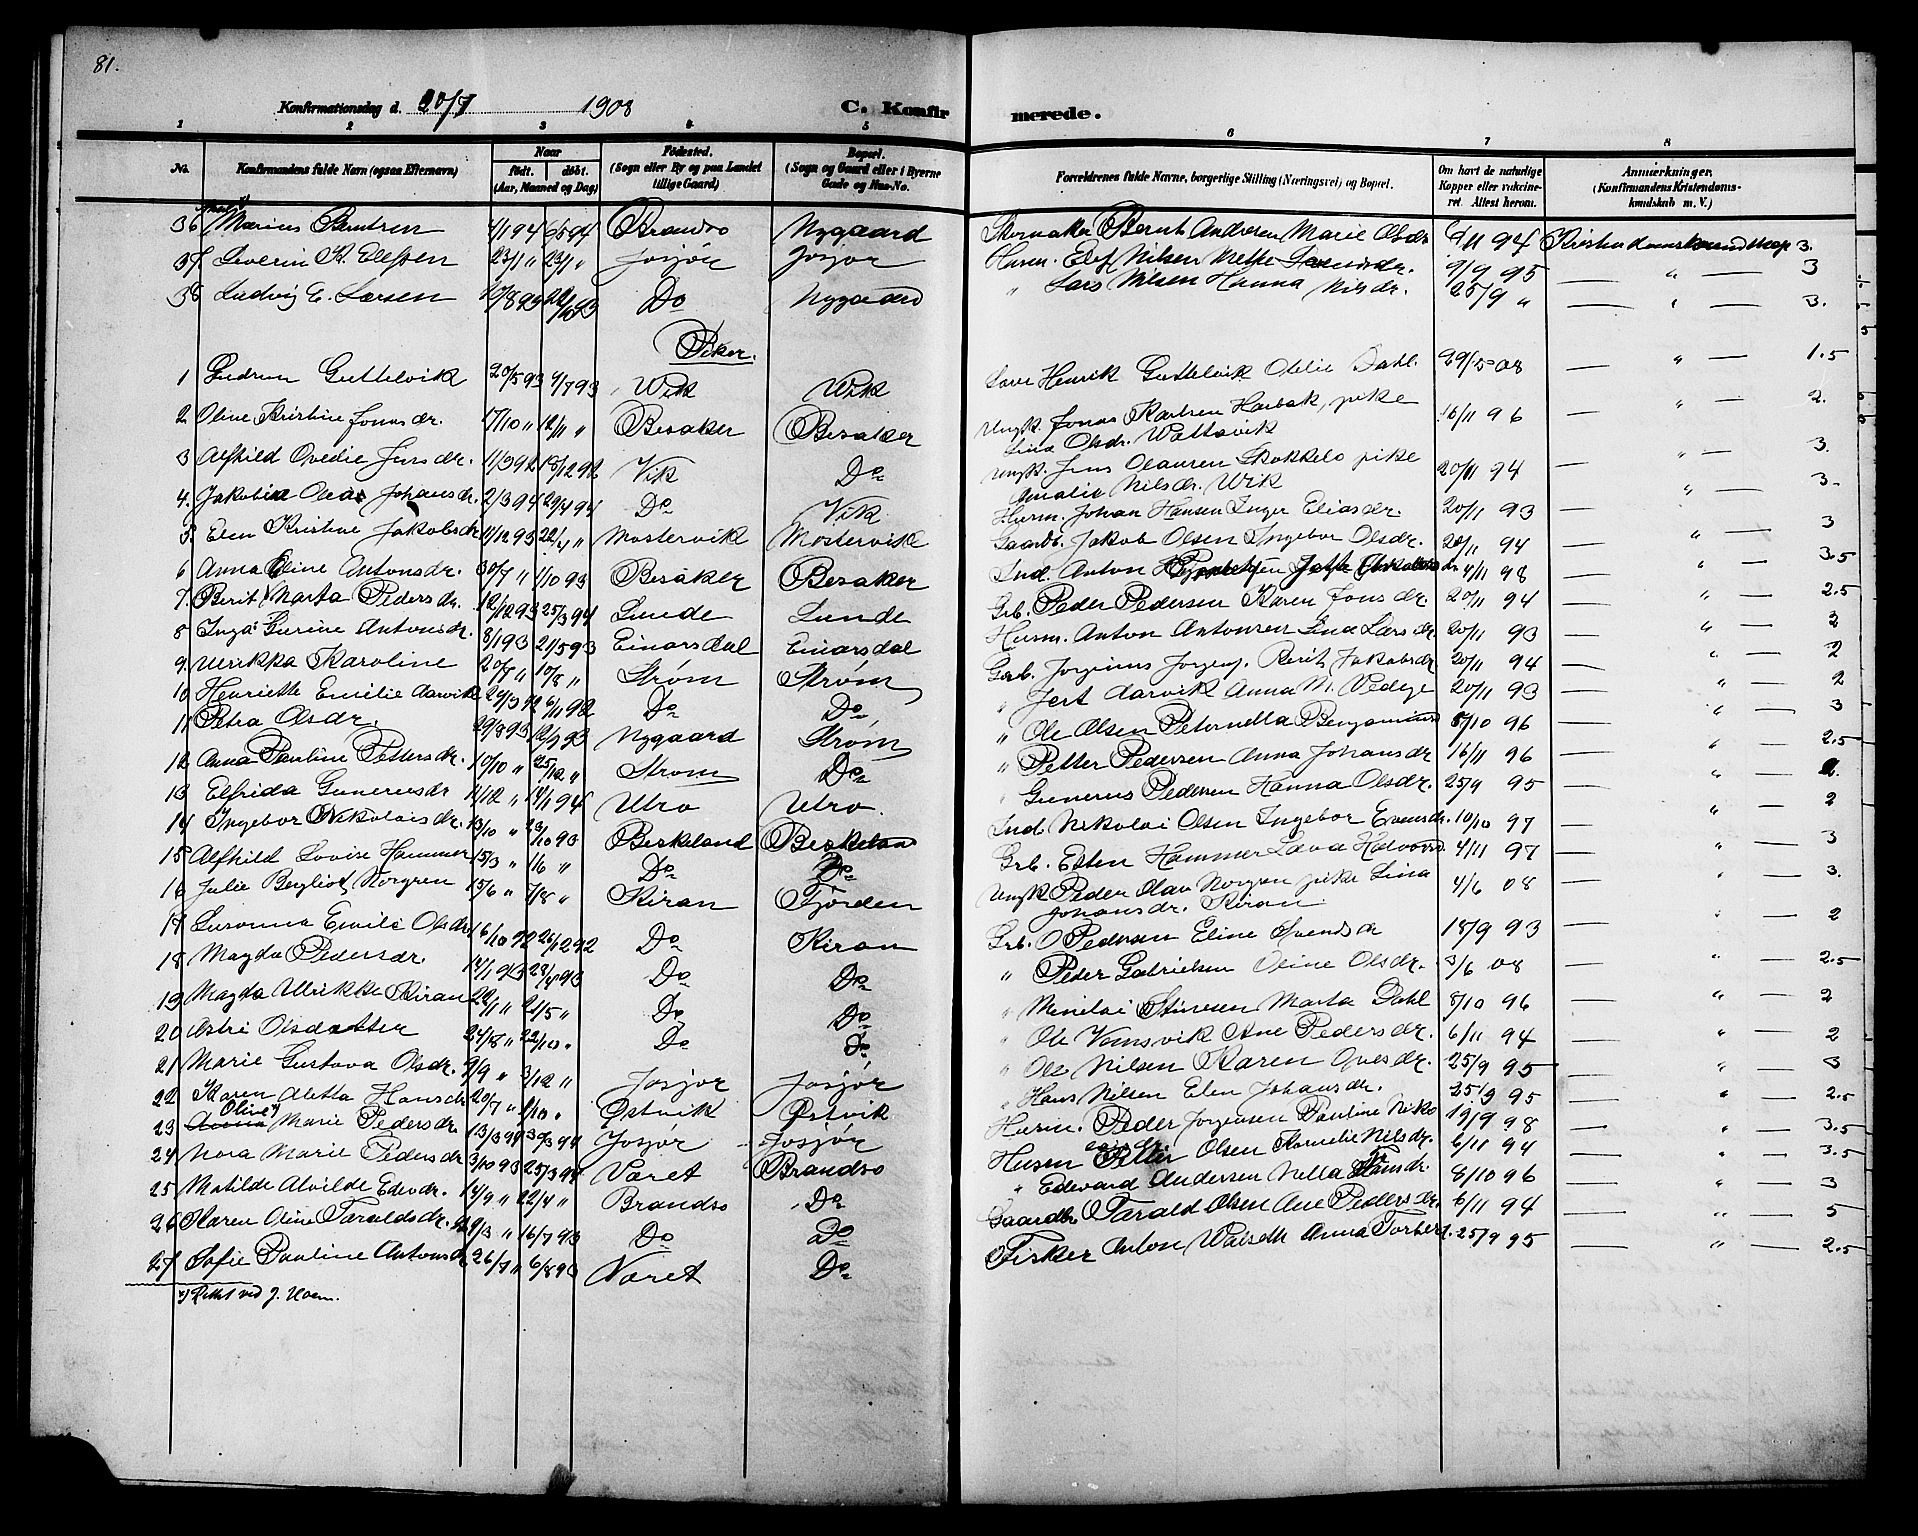 81.
Konfirmationsdag d. 20/7 1908
C. Konfirmerede.
1 2 3 4 5 6 7 8
No. Konfirmandens fulde Navn (ogsaa Efternavn) Naar født. døbt. (Aar, Maaned og Dag) Fødested. (Sogn eller By og paa Landet tillige Gaard) Bopæl. (Sogn og Gaard eller i Byerne Gade og Hus-No. Forældrenes fulde Navne, borgerlige Stilling (Næringsvei) og Bopæl. Om havt de naturlige Kopper eller vaccineret. Attest herom. Anmærkninger. (Konfirmandens Kristendomskundskab m. V.)
36 Marius Berntsen 1/1 94 6/5 94 Brandsø Nygaard Skomaker Bernt Andersen Marie Olsdr 94 Kristendomskundskap 3
37 Severin K. Elefsen 23/1 " 23/ " Josjør Josjør Husm. Elef Nilsen Mette 9/9 95 " 3
38 Ludvig E. Larsen /8 93 93 Do Nygaard " Lars Nilsen Hanna Nilsdr. 25/9 " " 3.
Piker.
1 Gudrun Guttelvik 20/5 93 /7 93 Wik Wik Henrik Guttelvik Otelie Dahl. 29/5 08 " 1.5
2 Oline Kristine Jonasdr. 17/10 " 12/11 " Besaker Besaker Ungk. Jonas Karlsen Harbak, pike 16/11 96 " 2.
Lina Olsdr. Wattavik
3 Alfhild Ovedie Jensdr. 11/3 92 18/12 92 Vik Do Ungk. Jens Olausen Skokkelo pike 20/11 94 " 3.
Amalie Nilsdr. Wik
4. Jakobia Olea Johansdr. 2/3 94 29/4 94 Do Vik Husm. Johan Hansen Inger Eliasdr. 20/11 93 " 3.
5. Elen Kristine Jakobsdr 11/12 93 22/4 " Mostervik Mostervik Gaardb. Jakob Olsen Ingebor Olsdr. 20/11 94 " 3
6 Anna Eline Antonsdr. 30/7 " 1/10 93 Besaker Besaker Ind. Anton 4/11 98 " 3.5
7. Berit Marta Pedersdr. 12/12 93 25/3 94 Lunde Lunde Grb. Peder Pedersen Karen Jonsdr. 20/11 94 " 2.5
8 Inga Gurine Antonsdr. 8/1 93 21/5 93 Einarsdal Einarsdal Husm. Anton Antonsen Lina Larsdr 20/11 93 " 2
9. Ulrikka Karoline 20/7 " 10/8 " Strøm Strøm Grb. Jørginus Jørgens. Berit Jakobsdr 20/11 94 " 2
10 Henriette Emelie Aarvik 29/3 92 6/11 92 Do Do " Jert Aarvik Anna M. Vedeye 20/11 93 " 2
11 Petra Olsdr. 29/8 93 12/9 93 Nygaard Strøm " Ole Olsen Peternella Benjamins 5/10 96 " 3
12 Anna Pauline Pettersdr. 10/10 " 25/12 " Strøm Do " Petter Pedersen Anna Johansdr 16/11 96 " 2.5
13 Elfrida Guneriusdr 11/12 " 14/1 94 Utro Utro " Gunerus Pedersen Hanna Olsdr. 25/9 95 " 2.
14 Ingebor Nikolaisdr. 13/10 " 29/10 93 Beskeland Beskeland Ind. Nikolai Olsen Ingebor Evensdr. 10/10 97 " 2
15 Alfhild Lovise Hammer 15/3 " 1/6 " Do Do Grb. Esten Hammer Lava 4/11 97 " 3
16 Julie Bergliot Norgren 15/6 " 7/8 " Kiran Fjorden Ungk Peder Olav Norgren pike Lina 4/6 08 " 3.
Johansdr. Kiran
17 Susanna Emilie Olsdr. 16/10 92 26/12 92 Do Kiran Grb. O Pedersen Eline Svendsdr 18/9 93 " 2
18 Magda Pedersdr. 14/1 93 23/4 93 Do Do " Peder Gabrielsen Oline Olsdr. 3/6 08 " 2.5
19 Magda Ulrikke Kiran 22/1 " 21/5 " Do Do " Stinesen Marta Dahl 5/10 96 " 2
20 Astri Olsdatter 24/8 " 22/10 " Do Do " Ole Vemsvik Ane Pedersdr. 6/11 94 " 2
21 Marie Gustava Olsdr. 9/9 " 3/12 " Josjør Josjør " Ole Nilsen Karen Ovesdr. 25/9 95 " 3
22 Karen Aletta Hansdr 20/7 " 1/10 " Østvik Østvik " Hans Nilsen Elen Johansdr. 25/9 95 " 2.5
Oline*)
23 Anna Marie Pedersdr. 13/3 94 30/3 94 Josjør Josjør Husm. Peder Jørgensen Pauline Niko 19/9 98 " 3.5
24 Nora Marie Pedersdr 3/10 93 25/3 94 Været Brandsø Husm Petter Olsen Kornelie Nilsdr. 6/11 94 " 3.5
25 Matilde Alvilde Edvdr. 14/9 " 22/4 " Brandsø Do " Edevard Andersen Nella 8/10 96 " 3
26 Karen Oline Taraldsdr. /3 " 16/7 93 Do Do Gaardbr Tarald Olsen Ane Pedersdr. 6/11 94 " 5
27 Sofie Pauline Antonsdr 26/7 " 6/8 93 Været Do Fisker Anton Walseth Anna Torberd. 25/9 95 " 2.5
*) Rettet ved J. Hoem.